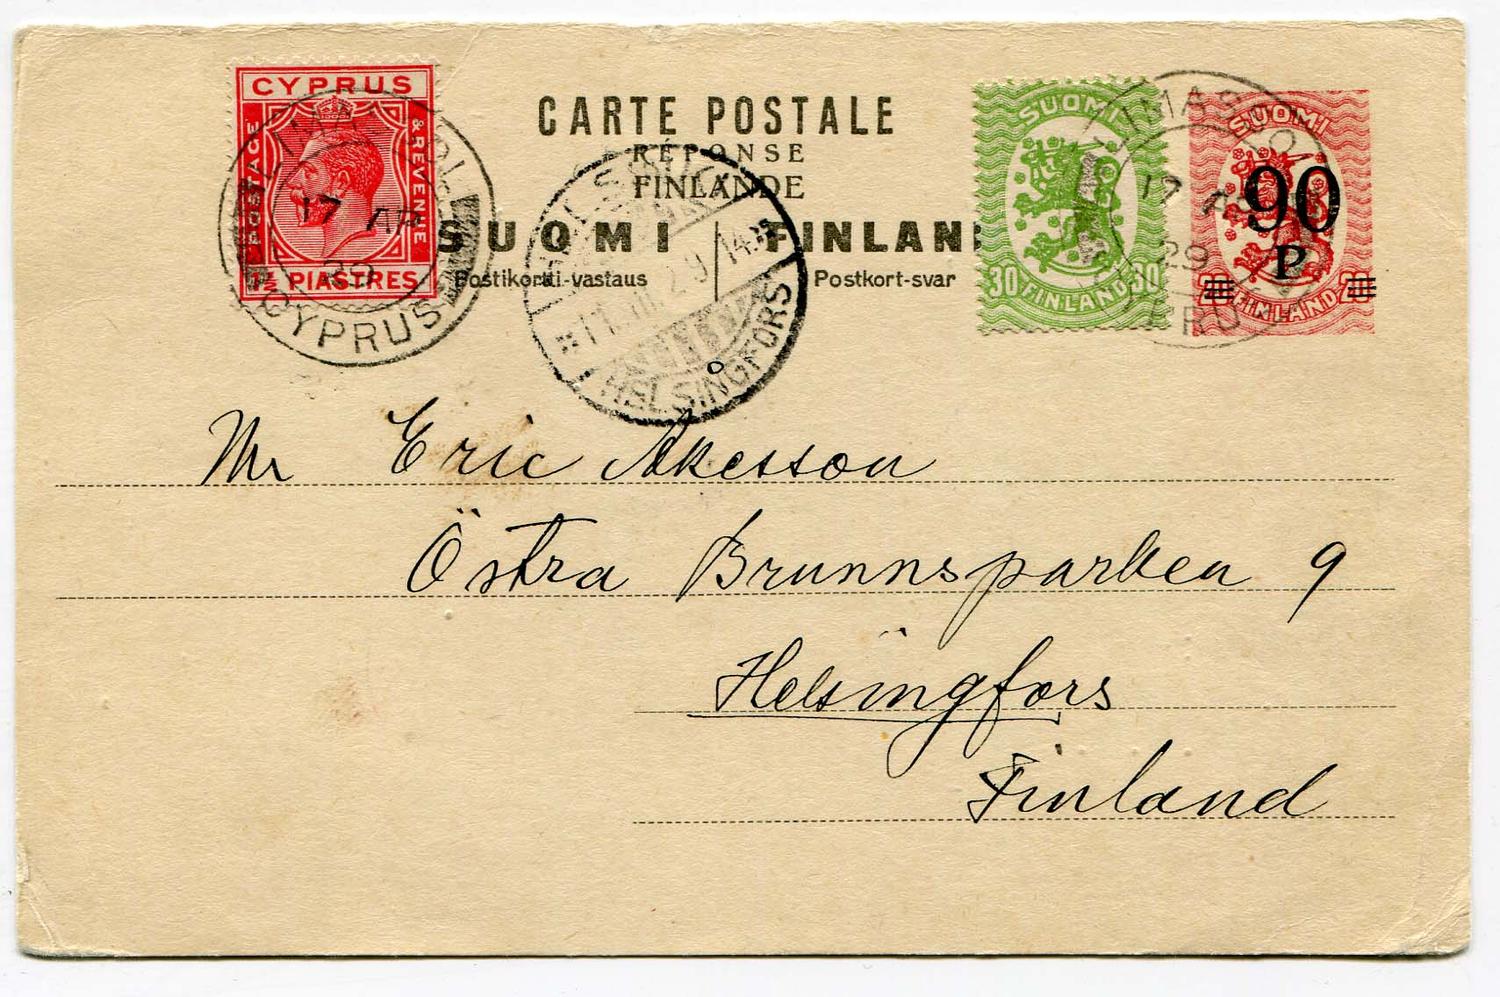 CYPRUS
POSTAGE
& REVENUE
1½ PIASTRES
LIMASSOL
17 AP
29
CYPRUS
CARTE POSTALE
RÉPONSE
FINLANDE
SUOMI FINLAN
Postikortti-vastaus Postkort-svar
HELSINKI
HELSINGFORS
SUOMI
30 FINLAND 30
LIMASSOL
17 AP
29
CYPRUS
SUOMI
90
P
FINLAND
Mr Eric Åkesson
Östra Brunnsparken 9
Helsingfors
Finland